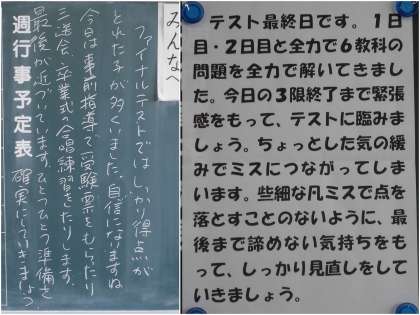 みんなへ
ファイナルテストではしっかり得点が
とれた子が多くいました。自信になりますね
今日は事前指導で受験票をもらったり
三送会、卒業式の合唱練習をたりします。
最後が近づいています。ひとつひとつ準備を
確実にしていきましょう
週行事予定表
テスト最終日です。1日
目・2日目と全力で6教科の
問題を全力で解いてきまし
た。今日の3限終了まで緊張
感をもって、テストに臨みま
しょう。ちょっとした気の緩
みでミスにつながってしま
います。些細な凡ミスで点を
落とすことのないように、最
後まで諦めない気持ちをも
って、しっかり見直しをして
いきましょう。